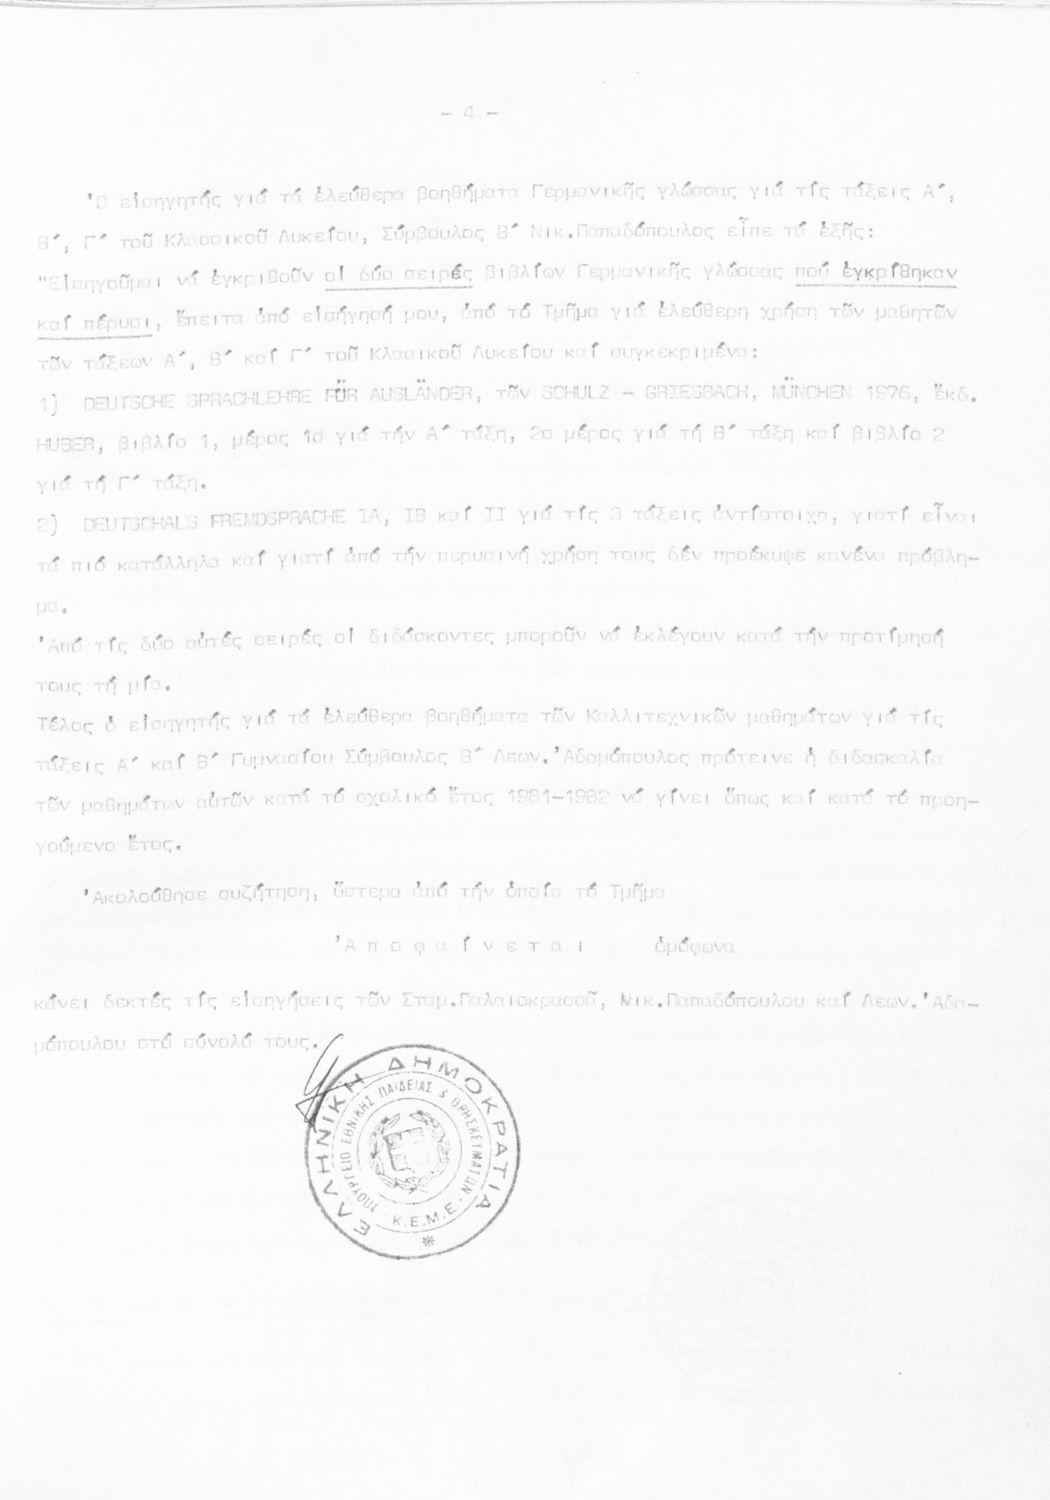 - 4 -
Ὁ εἰσηγητής γιά τά ἐλεύθερα βοηθήματα Γερμανικῆς γλώσσας γιά τίς τάξεις Α΄,
Β΄, Γ΄ τοῦ Κλασσικοῦ Λυκείου, Σύμβουλος Β΄ Νικ.Παπαδόπουλος εἶπε τά ἑξῆς:
"Εἰσηγοῦμαι νά ἐγκριθοῦν οἱ δύο σειρές βιβλίων Γερμανικῆς γλώσσας πού ἐγκρίθηκαν
καί πέρυσι, ἔπειτα ἀπό εἰσήγησή μου, ἀπό τό Τμῆμα γιά ἐλεύθερη χρήση τῶν μαθητῶν
τῶν τάξεων Α΄, Β΄ καί Γ΄ τοῦ Κλασικοῦ Λυκείου καί συγκεκριμένα:
1) DEUTSCHE SPRACHLEHRE FÜR AUSLÄNDER, τῶν SCHULZ - GRIESBACH, MÜNCHEN 1976, ἔκδ.
HUBER, βιβλίο 1, μέρος 1ο γιά τήν Α΄ τάξη, 2ο μέρος γιά τή Β΄ τάξη καί βιβλίο 2
γιά τή Γ΄ τάξη.
2) DEUTSCHALS FREMDSPRACHE IA, IB καί II γιά τίς 3 τάξεις ἀντίστοιχα, γιατί εἶναι
τά πιό κατάλληλα καί γιατί ἀπό τήν περυσινή χρήση τους δέν προέκυψε κανένα πρόβλη-
μα.
Ἀπό τίς δύο αὐτές σειρές οἱ διδάσκοντες μποροῦν νά ἐκλέγουν κατά τήν προτίμησή
τους τή μία.
Τέλος ὁ εἰσηγητής γιά τά ἐλεύθερα βοηθήματα τῶν Καλλιτεχνικῶν μαθημάτων γιά τίς
τάξεις Α΄ καί Β΄ Γυμνασίου Σύμβουλος Β΄ Λεων.Ἀδαμόπουλος πρότεινε ἡ διδασκαλία
τῶν μαθημάτων αὐτῶν κατά τό σχολικό ἔτος 1981-1982 νά γίνει ὅπως καί κατά τό προη-
γούμενο ἔτος.
Ἀκολούθησε συζήτηση, ὕστερα ἀπό τήν ὁποία τό Τμῆμα
Ἀ π ο φ α ί ν ε τ α ι ὁμόφωνα
κάνει δεκτές τίς εἰσηγήσεις τῶν Σταμ.Παλαιοκρασσᾶ, Νικ.Παπαδόπουλου καί Λεων.Ἀδα-
μόπουλου στό σύνολό τους.
ΕΛΛΗΝΙΚΗ ΔΗΜΟΚΡΑΤΙΑ
ΥΠΟΥΡΓΕΙΟ ΕΘΝΙΚΗΣ ΠΑΙΔΕΙΑΣ & ΘΡΗΣΚΕΥΜΑΤΩΝ
Κ.Ε.Μ.Ε.